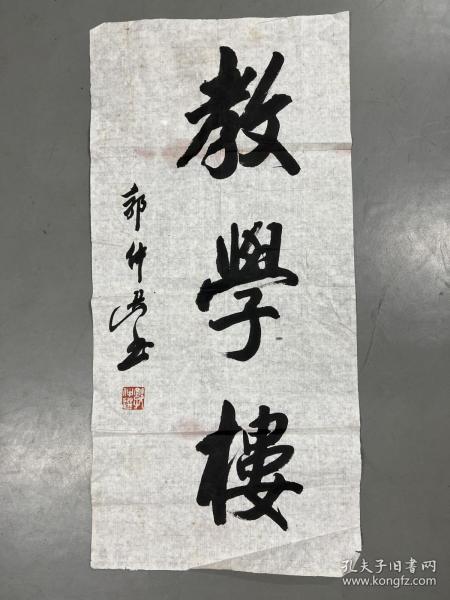 教學樓
郭仲選书
孔夫子旧书网
www.kongfz.com